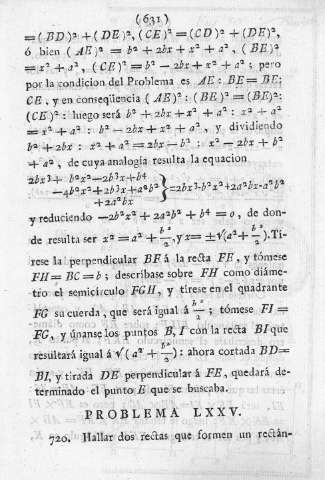 (631)
=(BD)²+(DE)², (CE)²=(CD)²+(DE)²,
ó bien (AE)² = b² + 2bx + x² + a², (BE)²
= x² + a², (CE)² = b² - 2bx + x² + a²; pero
por la condicion del Problema es AE: BE= BE:
CE, y en conseqüencia (AE)²: (BE)² = (BE)²:
(CE)²: luego será b² + 2bx + x² + a²: x² + a²
= x² + a²: b² - 2bx + x² + a², y dividiendo
b² + 2bx : x² + a² = 2bx - b² : x² - 2bx + b²
+ a², de cuya analogía resulta la equacion
2bx³ + b²x² - 2b³x + b⁴
-4b²x² + 2b³x + a²b² } = 2bx³-b²x²+2a²bx-a²b²
+2a²bx
y reduciendo -2b²x² + 2a²b² + b⁴ = 0, de don-
de resulta ser x² = a² + b²/2, y x = ±√(a² + b²/2). Tí-
rese la perpendicular BF á la recta FE, y tómese
FH= BC= b; describase sobre FH como diáme-
tro el semicírculo FGH, y tírese en el quadrante
FG su cuerda, que será igual á b²/2; tómese FI=
FG, y únanse los puntos B, I con la recta BI que
resultará igual á √(a² + b²/2): ahora cortada BD=
BI, y tirada DE perpendicular á FE, quedará de-
terminado el punto E que se buscaba.
PROBLEMA LXXV.
720. Hallar dos rectas que formen un rectán-